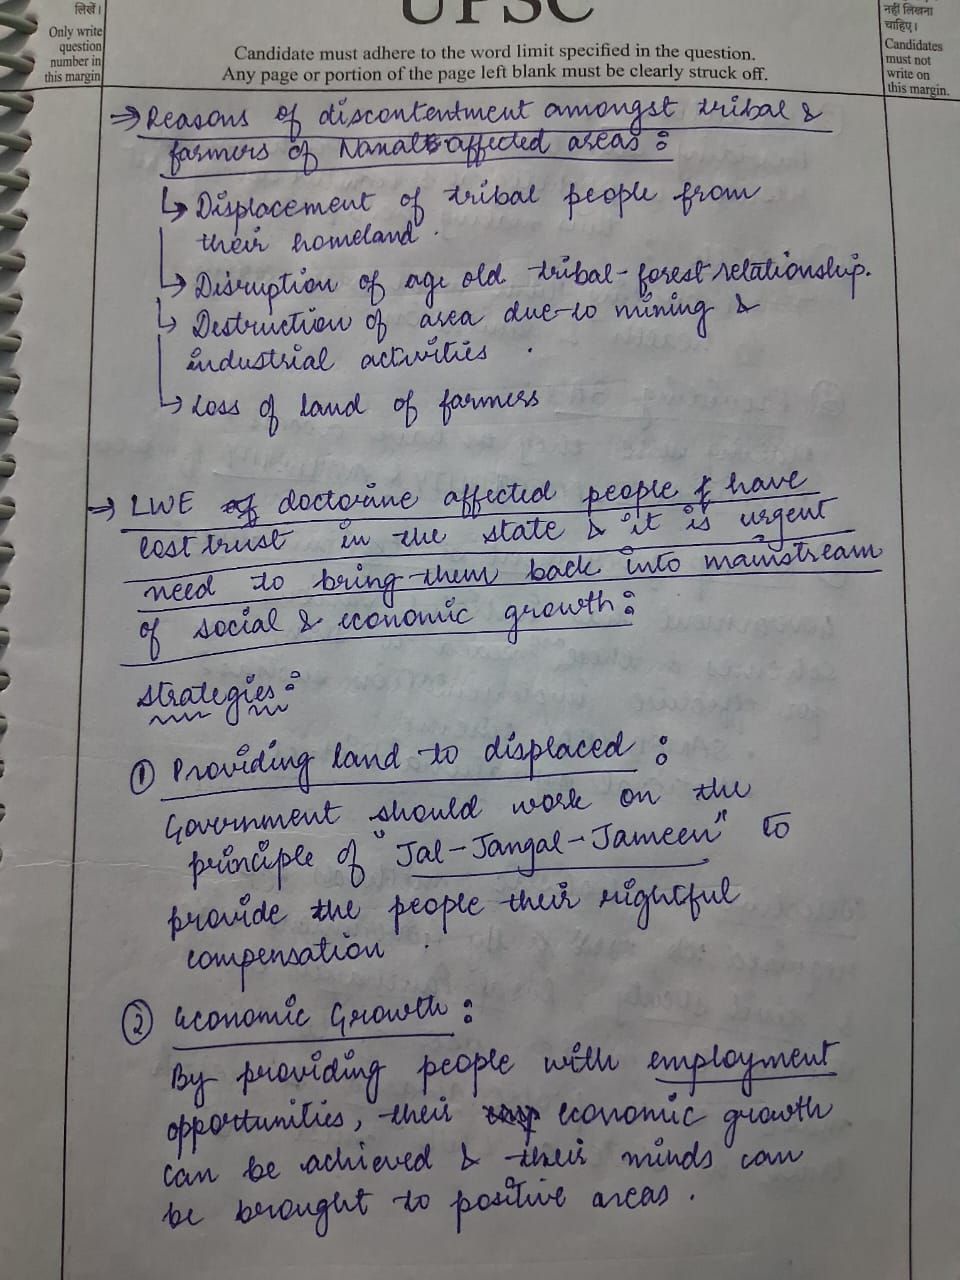 लिखें।
Only write
question
number in
this margin
UPSC
Candidate must adhere to the word limit specified in the question.
Any page or portion of the page left blank must be clearly struck off.
नहीं लिखना
चाहिए।
Candidates
must not
write on
this margin.
→ Reasons of discontentment amongst tribal &
farmers of Naxal affected areas :
↳ Displacement of tribal people from
their homeland.
↳ Disruption of age old tribal-forest relationship.
↳ Destruction of area due-to mining &
industrial activities .
↳ Loss of land of farmers
→ LWE of doctorine affected people & have
lost trust in the state & it is urgent
need to bring them back into mainstream
of social & economic growth :
Strategies :
① Providing land to displaced :
Government should work on the
principle of "Jal-Jangal-Jameen" to
provide the people their rightful
compensation .
② Economic Growth :
By providing people with employment
opportunities, their economic growth
can be achieved & their minds can
be brought to positive areas .